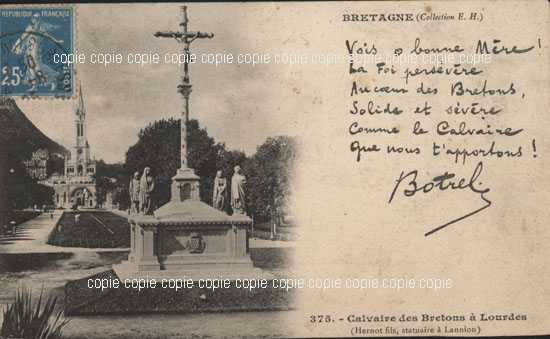 REPUBLIQUE FRANÇAISE
25
BRETAGNE (Collection E. H.)
Vois ô bonne Mère !
La Foi persévère
Au cœur des Bretons,
Solide et sévère
Comme le Calvaire
Que nous t'apportons !
Botrel
copie copie copie copie copie copie copie copie copie
copie copie copie copie copie copie copie copie copie
375. - Calvaire des Bretons à Lourdes
(Hernot fils, statuaire à Lannion)